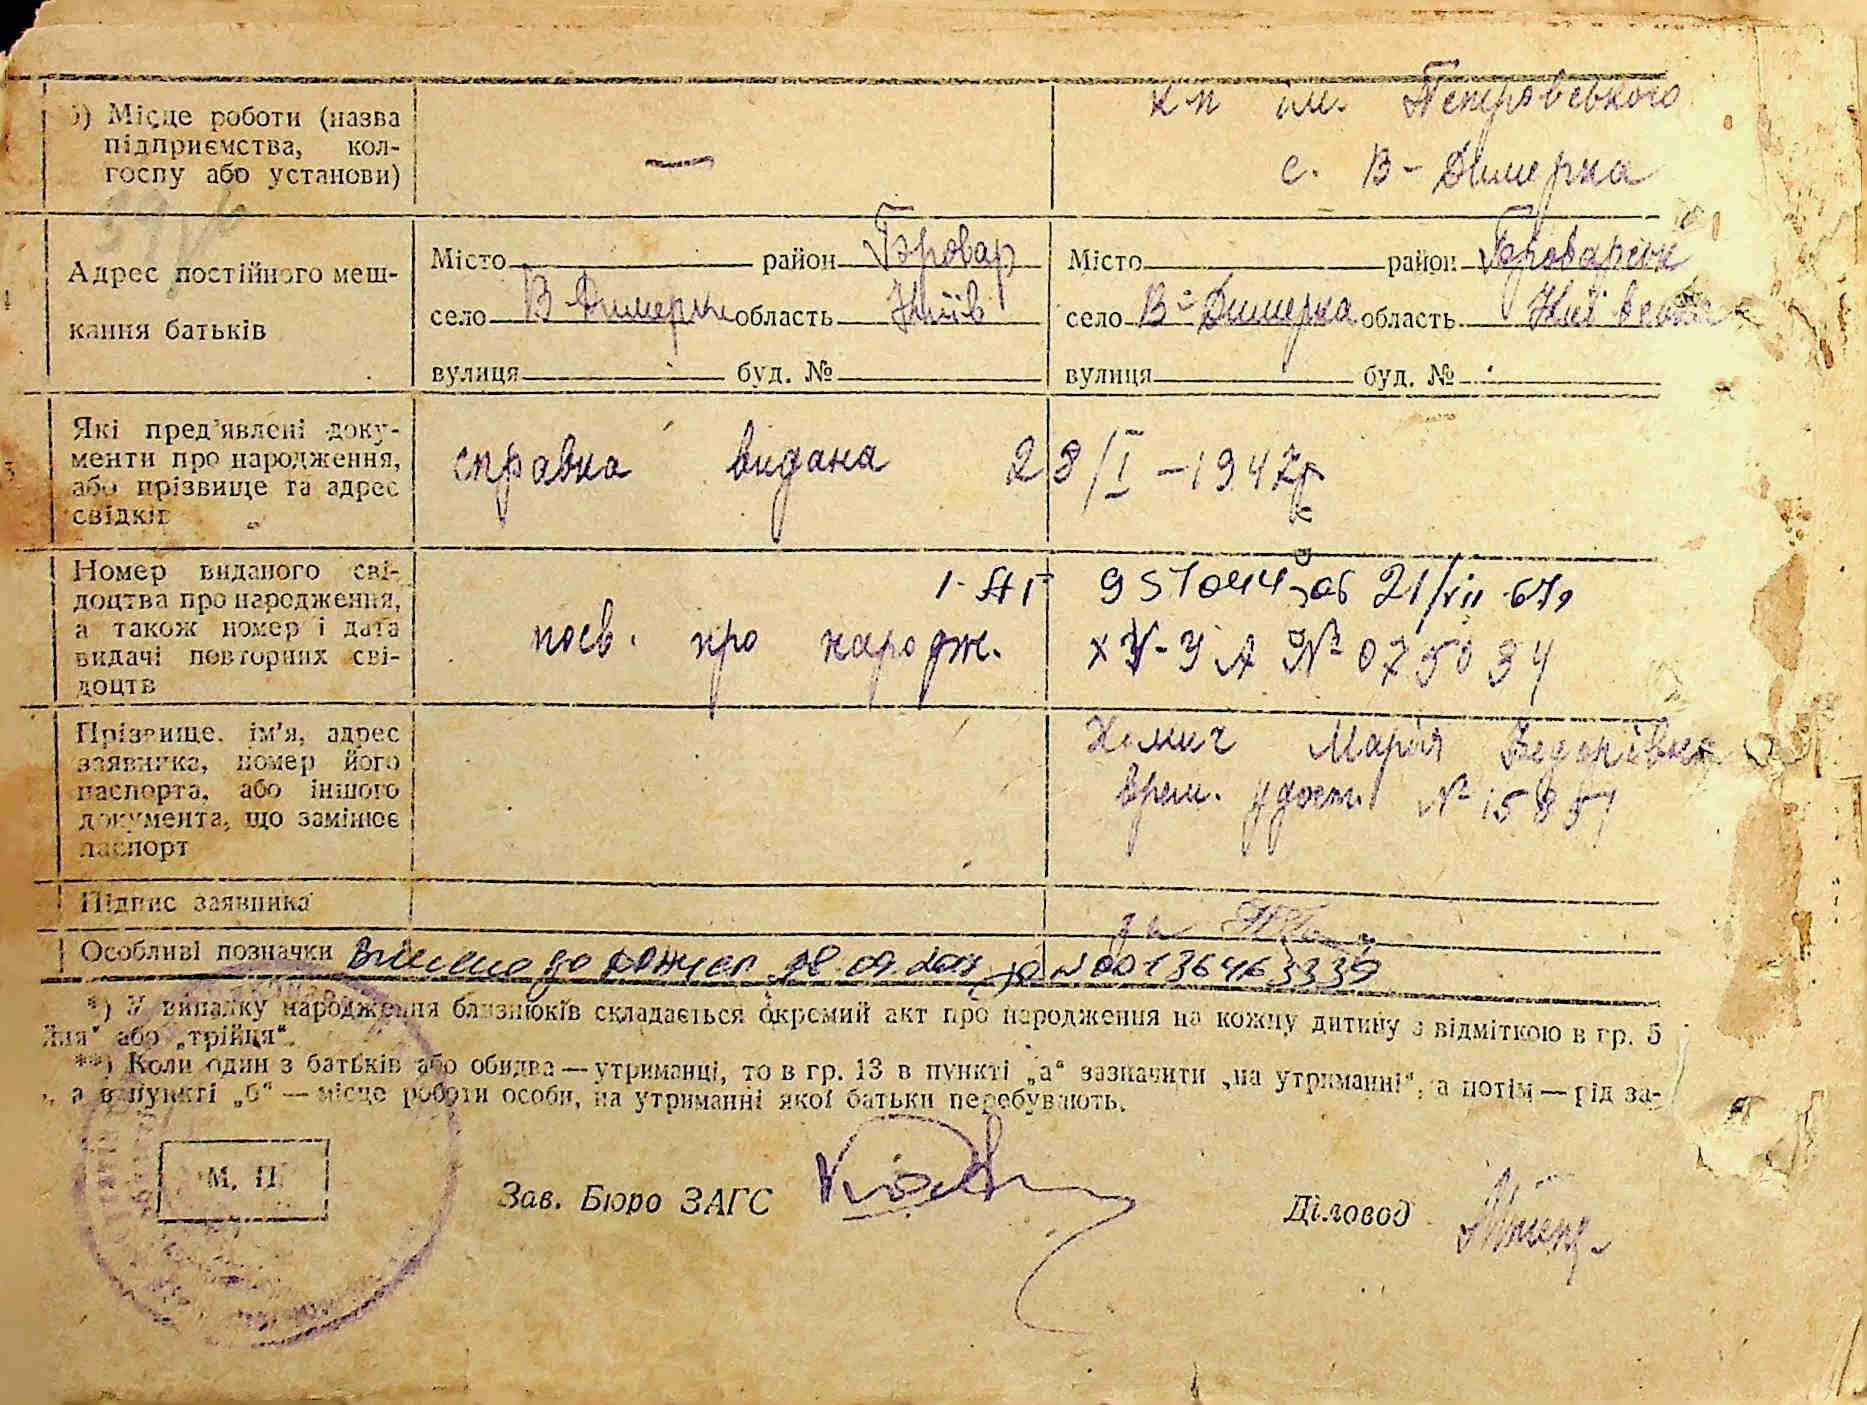 б) Місце роботи (назва
підприємства, кол-
госпу або установи)
—
к-п ім. Петровського
с. В-Димерка
Адрес постійного меш-
кання батьків
Місто район Бровар
село В-Димерка область Київ
вулиця буд. №
Місто район Броварськ
село В-Димерка область Київська
вулиця буд. №
Які пред'явлені доку-
менти про народження,
або прізвище та адрес
свідків
справка видана 28/I – 1947р
Номер виданого сві-
доцтва про народження,
а також номер і дата
видачі повторних сві-
доцтв
957044 об 21/VII 67р
посв. про народж. ХV-УА № 075034
Прізвище, ім'я, адрес
заявника, номер його
паспорта, або іншого
документа, що замінює
паспорт
Хомич Марія Федорівна
врем. удост. № 15857
Підпис заявника
за
Особливі позначки Внесено до 18.09. за N00136463339
*) У випадку народження близнюків складається окремий акт про народження на кожну дитину з відміткою в гр. 5
йня" або „трійця".
**) Коли один з батьків або обидва — утриманці, то в гр. 13 в пункті „а" зазначити „на утриманні", а потім — рід за-
, а в пункті „б" — місце роботи особи, на утриманні якої батьки перебувають.
М. П.
Зав. Бюро ЗАГС
Діловод